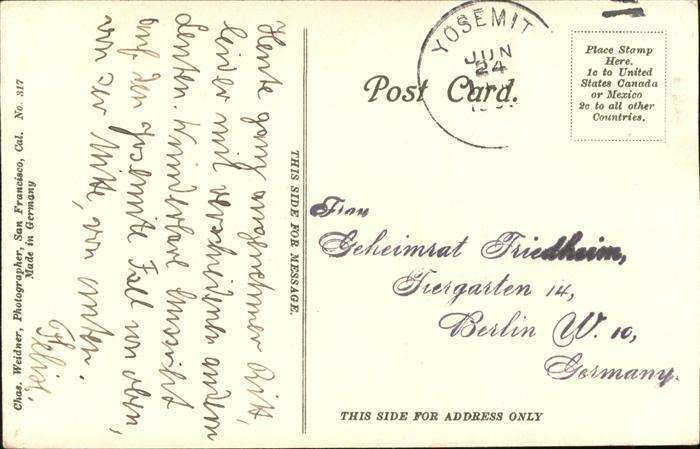 Chas. Weidner, Photographer, San Francisco, Cal. No. 317
Made in Germany
Heute ganz angenehmer Ritt,
leider mit verschiedenen andern
Leuten. Wunderbare Aussicht
auf den Yosemite Fall von oben,
von der Mitte, von unten.
Felix
THIS SIDE FOR MESSAGE.
YOSEMIT
JUN
24
Post Card.
Place Stamp
Here.
1c to United
States Canada
or Mexico
2c to all other
Countries.
Frau
Geheimrat Friedheim,
Tiergarten 14,
Berlin W. 10,
Germany.
THIS SIDE FOR ADDRESS ONLY